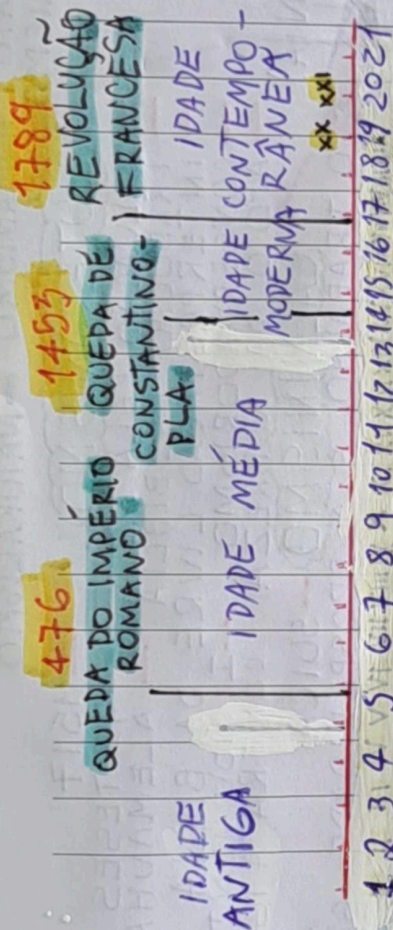 476
QUEDA DO IMPÉRIO
ROMANO
1453
QUEDA DE
CONSTANTINO-
PLA
1789
REVOLUÇÃO
FRANCESA
IDADE
ANTIGA
IDADE MÉDIA
IDADE
MODERNA
IDADE
CONTEMPO-
RÂNEA
XX XXI
1 2 3 4 5 6 7 8 9 10 11 12 13 14 15 16 17 18 19 20 21